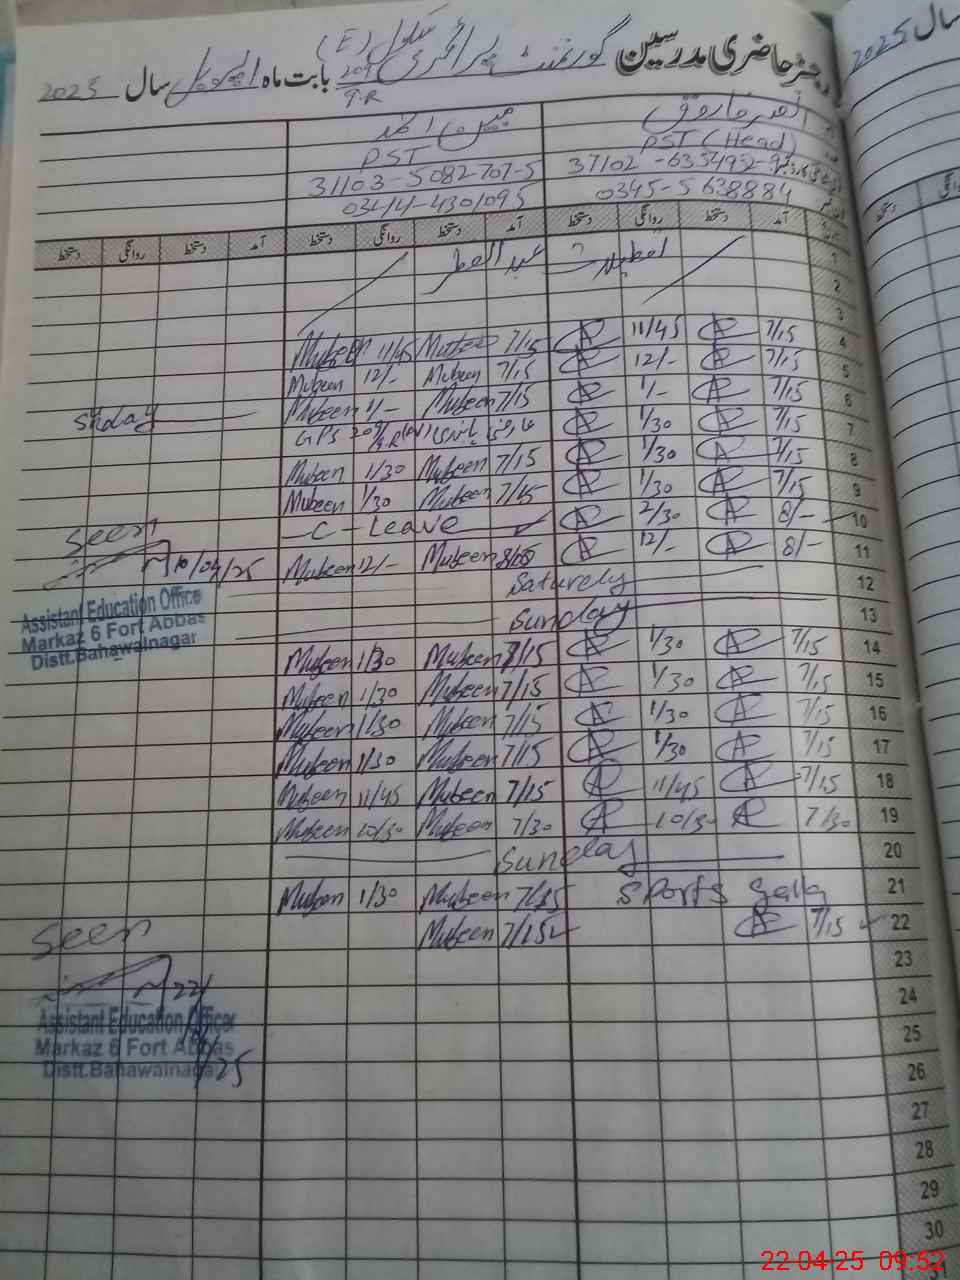 رجسٹر حاضری مدرسین گورنمنٹ پرائمری سکول (E) 209/9.R بابت ماہ اپریل سال 2025
سال 2025
PST (Head) PST
37102-635492-9 31103-5082707-5
0345-5638884 0344-4301095
آمد دستخط روانگی دستخط آمد دستخط روانگی دستخط آمد دستخط روانگی دستخط
1 تعطیلات عید الفطر
2
3
4 7/15 11/45 7/15 Mubeen 11/45 Mubeen
5 7/15 12/- 7/15 Mubeen 12/- Mubeen
6 7/15 1/- 7/15 Mubeen 1/- Mubeen
7 7/15 1/30 عارضی GPS 209/9.R
8 7/15 1/30 7/15 Mubeen 1/30 Mubeen
9 7/15 1/30 7/15 Mubeen 1/30 Mubeen
10 8/- 2/30 C-Leave
11 8/- 12/- Mubeen 12/- Mubeen
Seen
10/04/25
Assistant Education Officer
Markaz 6 Fort Abbas
Distt.Bahawalnagar
12 Saturely
13 Sunday
14 7/15 1/30 7/15 Mubeen 1/30 Mubeen
15 7/15 1/30 7/15 Mubeen 1/30 Mubeen
16 7/15 1/30 7/15 Mubeen 1/30 Mubeen
17 7/15 1/30 7/15 Mubeen 1/30 Mubeen
18 7/15 11/45 7/15 Mubeen 11/45 Mubeen
19 7/30 10/30 7/30 Mubeen 10/30 Mubeen
20 Sunday
21 Sports Gala 7/15 Mubeen 1/30 Mubeen
22 7/15 7/15 Mubeen
Seen
22/4/25
Assistant Education Officer
Markaz 6 Fort Abbas
Distt.Bahawalnagar
23
24
25
26
27
28
29
30
22-04-25 09:52